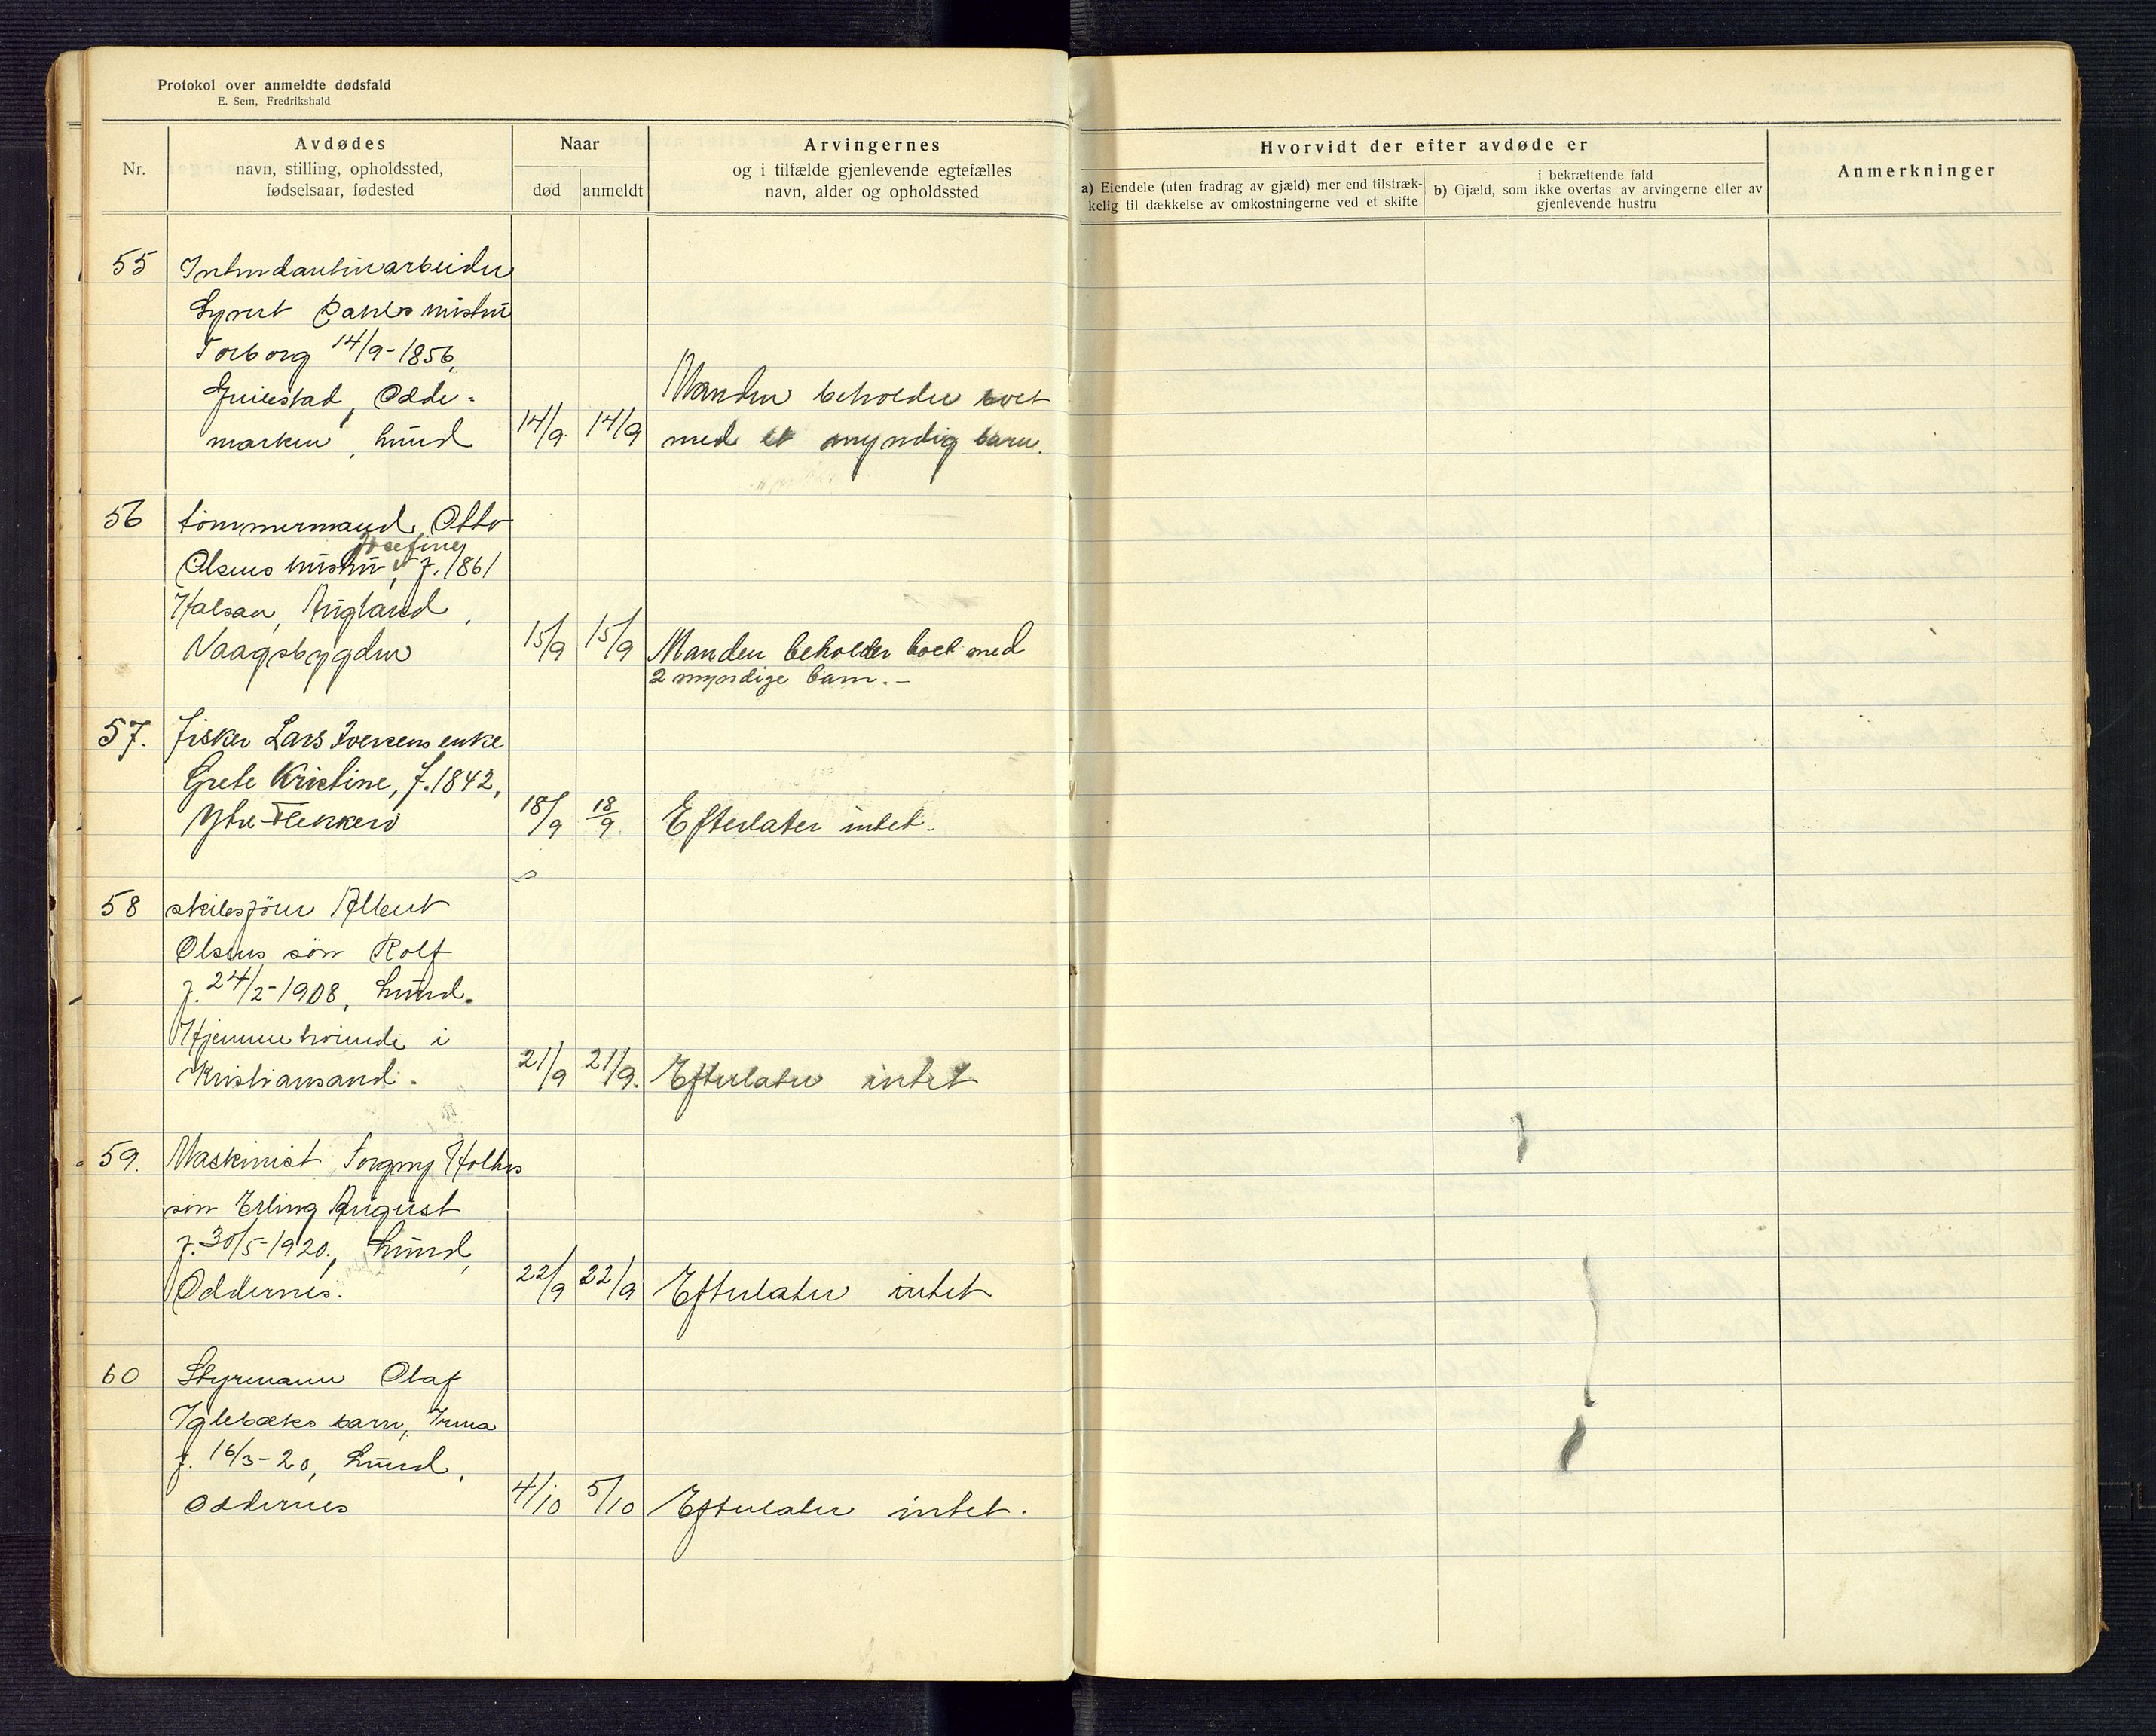 Protokol over anmeldte dødsfald
E. Sem, Fredrikshald
Nr.
Avdødes
navn, stilling, opholdssted,
fødselsaar, fødested
Naar
død
anmeldt
Arvingernes
og i tilfælde gjenlevende egtefælles
navn, alder og opholdssted
Hvorvidt der efter avdøde er
a) Eiendele (uten fradrag av gjæld) mer end tilstræk-
kelig til dækkelse av omkostningerne ved et skifte
i bekræftende fald
b) Gjæld, som ikke overtas av arvingerne eller av
gjenlevende hustru
Anmerkninger
55 Intendanturarbeider
Syvert Dahls hustru
Torborg 14/9-1856,
Odde-
marken, Lund 14/9 14/9
Manden beholder boet
med et myndig barn.
56 tømmermand Otto
Josefine
Olsens hustru, f. 1861
Halsaa, Augland,
Vaagsbygden 15/9 15/9 Manden beholder boet med
2 myndige barn.-
57. fisker Lars Iversens enke
Grete Kristine, f. 1842,
Ytre-Flekkerö 18/9 18/9 Efterlater intet.
58 skibsförer Albert
Olsens sön Rolf
f. 24/2-1908, Lund.
Hjemmehörende i
Kristiansand. 21/9 21/9. Efterlater intet
59. Maskinist Torgny Holtes
sön Erling August
f. 30/5-1920, Lund,
Oddernes. 22/9 22/9 Efterlater intet
60 Styrmann Olaf
Iglebæks barn, Irma
f. 16/3-20, Lund,
Oddernes 4/10 5/10 Efterlater intet.